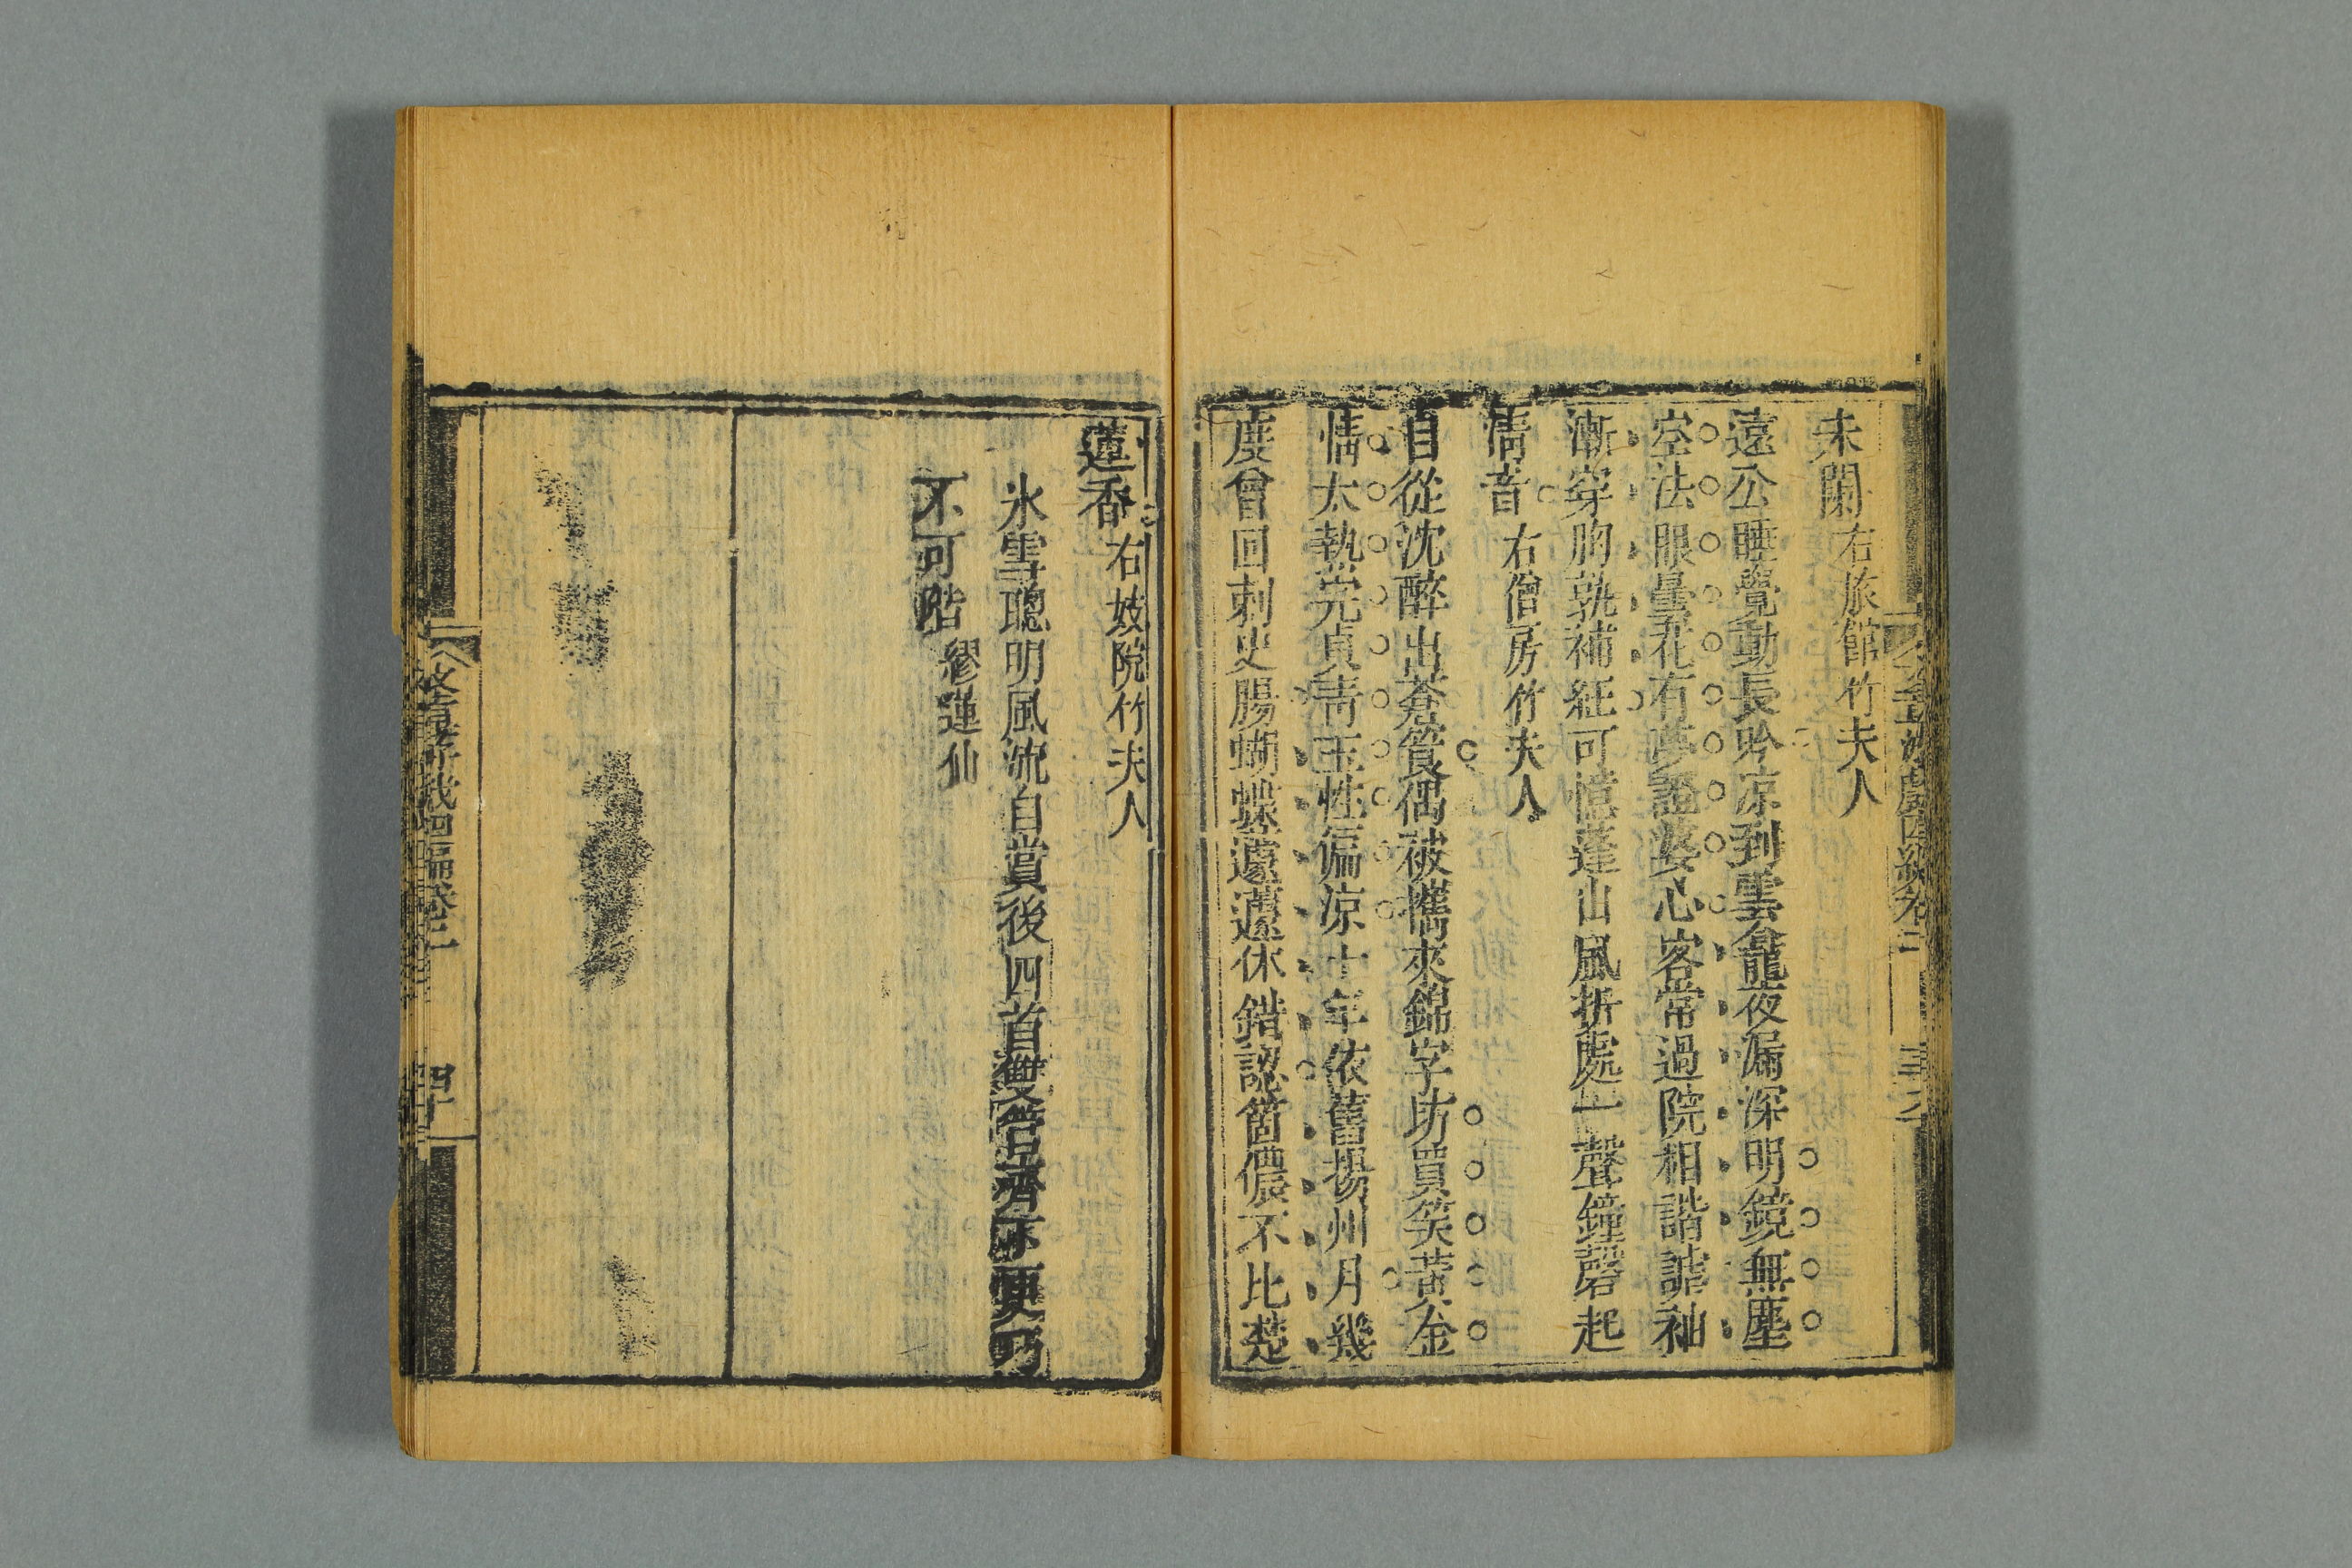 未閑右旅館竹夫人
遠公睡覺動長吟凉到雲龕夜漏深明鏡無塵
空法眼曇花有夢證婆心客常過院相諧謔袖
漸穿胸孰補紝可憶蓬山風折處一聲鐘磬起
清音右僧房竹夫人
自從沈醉出蒼筤偶被攜來錦字坊買笑黃金
情太執完貞靑玉性偏凉十年依舊揚州月幾
度曾回刺史腸蝴蝶蘧蘧休錯認箇儂不比楚
蓮香右妓院竹夫人
氷雪聰明風流自賞後四首雙管齊下更乃
不可階繆蓮仙
文章游戲四編卷二 四十